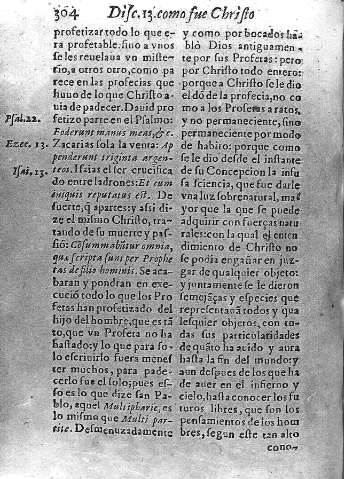 304 Disc. 13. como fue Christo
profetizar todo lo que e-
ra profetable: sino a vnos
se les reuelaua vn miste-
rio, a otros otro, como pa
rece en las profecias que
huuo de lo que Christo a
uia de padecer. Dauid pro
fetizo parte en el Psalmo:
Psal. 22.
Foderunt manus meas, &c.
Ezec. 13.
Zacarias sola la venta: Ap
penderunt triginta argen-
Isai. 13.
teos. Isaias el ser crucifica
do entre ladrones: Et cum
iniquis reputatus est. De
suerte, q̃ aparte: y assi di-
ze el mismo Christo, tra-
tando de su muerte y pas-
sió: Cõsummabũtur omnia,
quæ scripta sunt per Prophe
tas de filio hominis. Se aca-
baran y pondran en exe-
cució todo lo que los Pro
fetas han profetizado del
hijo del hombre, que es tã
to, que vn Profeta no ha
bastado: y lo que para so-
lo escriuirlo fuera menes
ter muchos, para pade-
cerlo fue el solo; pues es-
so es lo que dize san Pa-
blo, aquel Multipharie, es
lo mismo que Multi par-
tite. Desmenuzadamente
y como por bocados ha-
blò Dios antiguamen-
te por sus Profetas: pero
por Christo todo entero:
porque a Christo se le dio
el dõ de la profecia, no co
mo a los Profetas a ratos,
y no permaneciente, sino
permaneciente por modo
de habito: porque como
se le dio desde el instante
de su Concepcion la infu
sa sciencia, que fue darle
vna luz sobrenatural, ma
yor que la que se puede
adquirir con fuerças natu
rales: con la qual el enten
dimiento de Christo no
se podia engañar en juz-
gar de qualquier objeto:
y juntamente se le dieron
semejãças y especies que
representauã todos y qua
lesquier objetos, con to-
das sus particularidades
de quãto ha acido y aura
hasta la fin del mundo: y
aun despues de los que ha
de auer en el infierno y
cielo, hasta conocer los fu
turos libres, que son los
pensamientos de los hom
bres, segun este tan alto
cono-